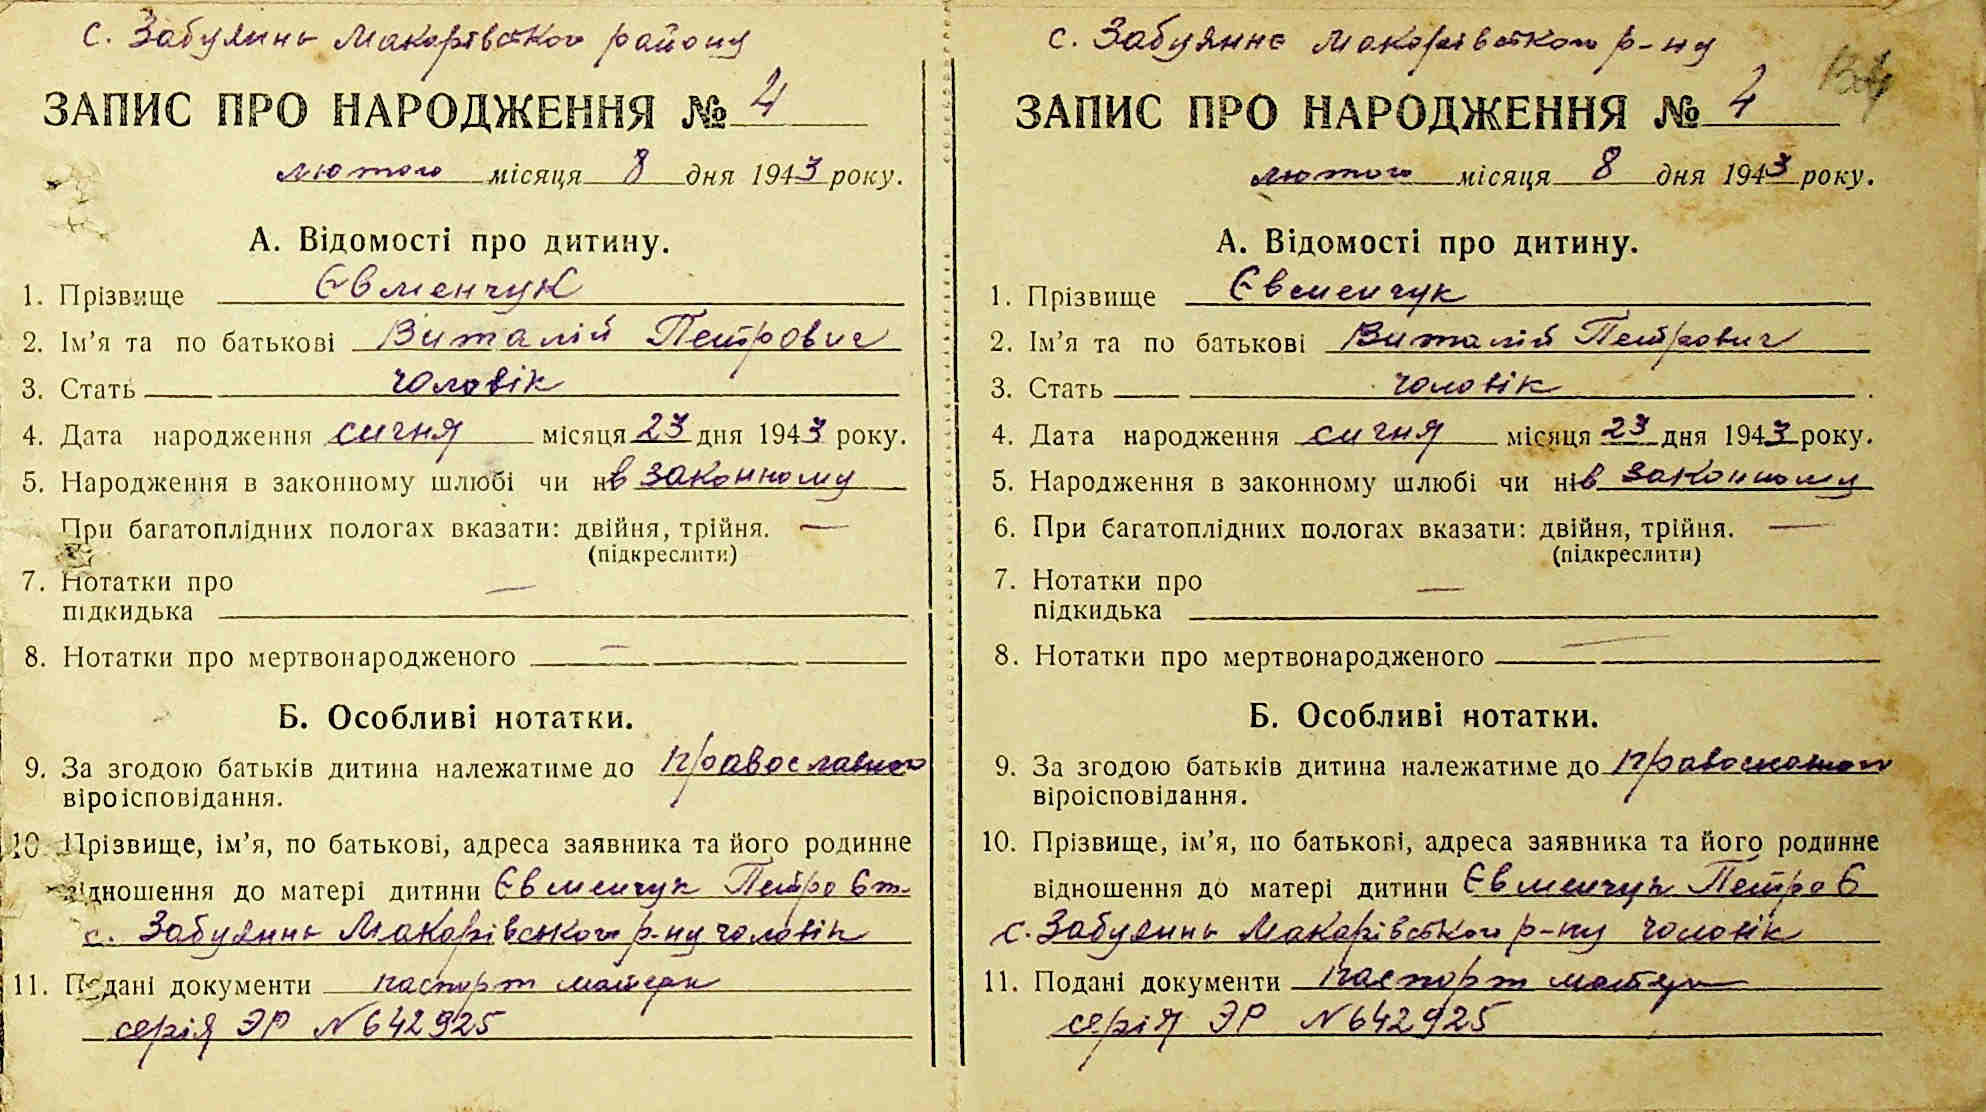 с. Забуяннь Макарівського району
ЗАПИС ПРО НАРОДЖЕННЯ № 4
лютого місяця 8 дня 1943 року.
А. Відомості про дитину.
1. Прізвище Євменчук
2. Ім’я та по батькові Виталій Петрович
3. Стать чоловік
4. Дата народження сичня місяця 23 дня 1943 року.
5. Народження в законному шлюбі чи н в законному
При багатоплідних пологах вказати: двійня, трійня. —
(підкреслити)
7. Нотатки про —
підкидька
8. Нотатки про мертвонародженого —
Б. Особливі нотатки.
9. За згодою батьків дитина належатиме до православного
віроісповідання.
10. Прізвище, ім’я, по батькові, адреса заявника та його родинне
відношення до матері дитини Євменчук Петро
с. Забуяннь Макарівського р-ну чоловік
11. Подані документи паспорт
серія ЭР N 642925
с. Забуянне Макарівського р-ну
ЗАПИС ПРО НАРОДЖЕННЯ № 4
лютого місяця 8 дня 1943 року.
А. Відомості про дитину.
1. Прізвище Євменчук
2. Ім’я та по батькові Виталій Петрович
3. Стать чоловік
4. Дата народження сичня місяця 23 дня 1943 року.
5. Народження в законному шлюбі чи ні в законному
6. При багатоплідних пологах вказати: двійня, трійня. —
(підкреслити)
7. Нотатки про —
підкидька
8. Нотатки про мертвонародженого —
Б. Особливі нотатки.
9. За згодою батьків дитина належатиме до православного
віроісповідання.
10. Прізвище, ім’я, по батькові, адреса заявника та його родинне
відношення до матері дитини Євменчук Петро
с. Забуяннь Макарівського р-ну чоловік
11. Подані документи паспорт
серія ЭР N 642925